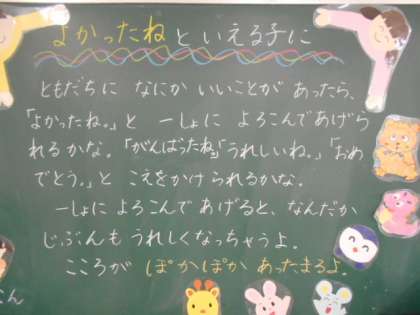 よかったね といえる子に
ともだちに なにか いいことが あったら、
「よかったね。」と 一しょに よろこんであげら
れるかな。「がんばったね。」「うれしいね。」「おめ
でとう。」と こえをかけられるかな。
一しょに よろこんで あげると、なんだか
じぶんも うれしくなっちゃうよ。
こころが ぽかぽか あったまるよ。